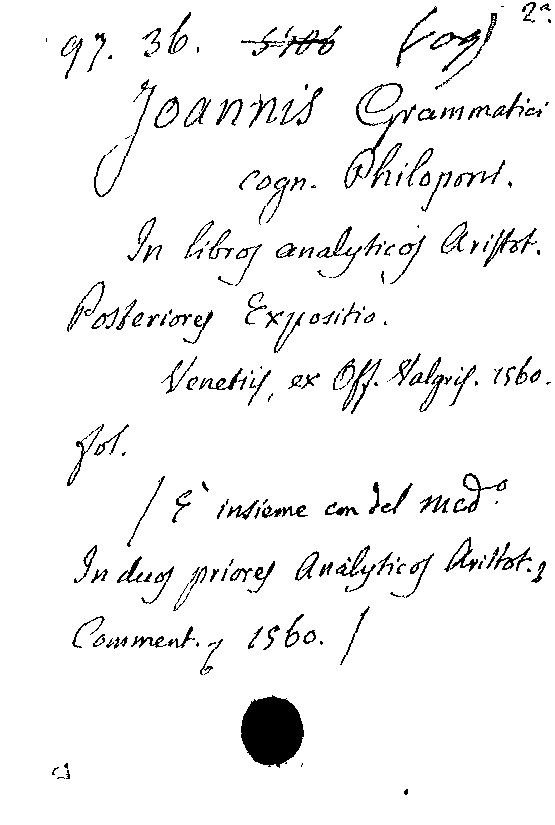 2ª
97. 36. 5706 (og)
Joannis Grammatici
cogn. Philoponi.
In libros analyticos Aristot.
Posteriores Expositio.
Venetiis, ex Off. Valgris. 1560.
fol.
/ E' insieme con del mcd.º
In duos priores Analyticos Aristot.
Comment. 1560. /